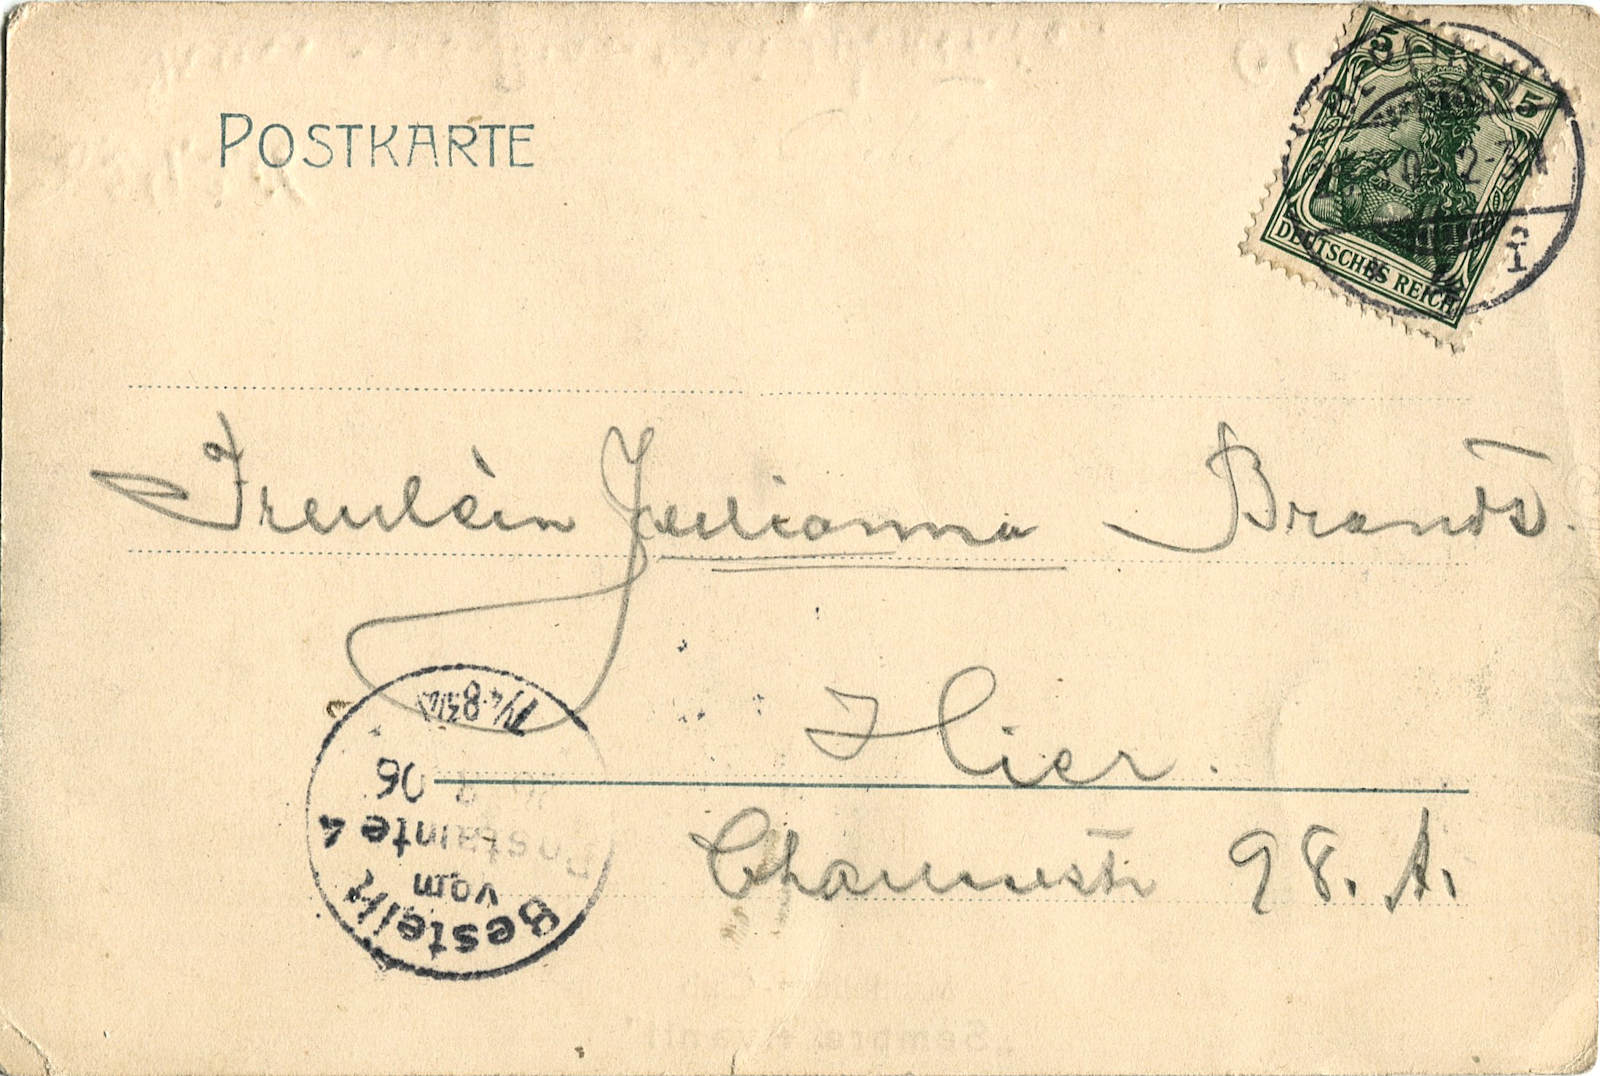 POSTKARTE
5 5
DEUTSCHES REICH
2-3N
Freulein Julianna Brands.
Hier.
Chausestr 98. A.
Bestellt
vom
Postamte 4
06
7¼-8¾
"Sempre Avanti"